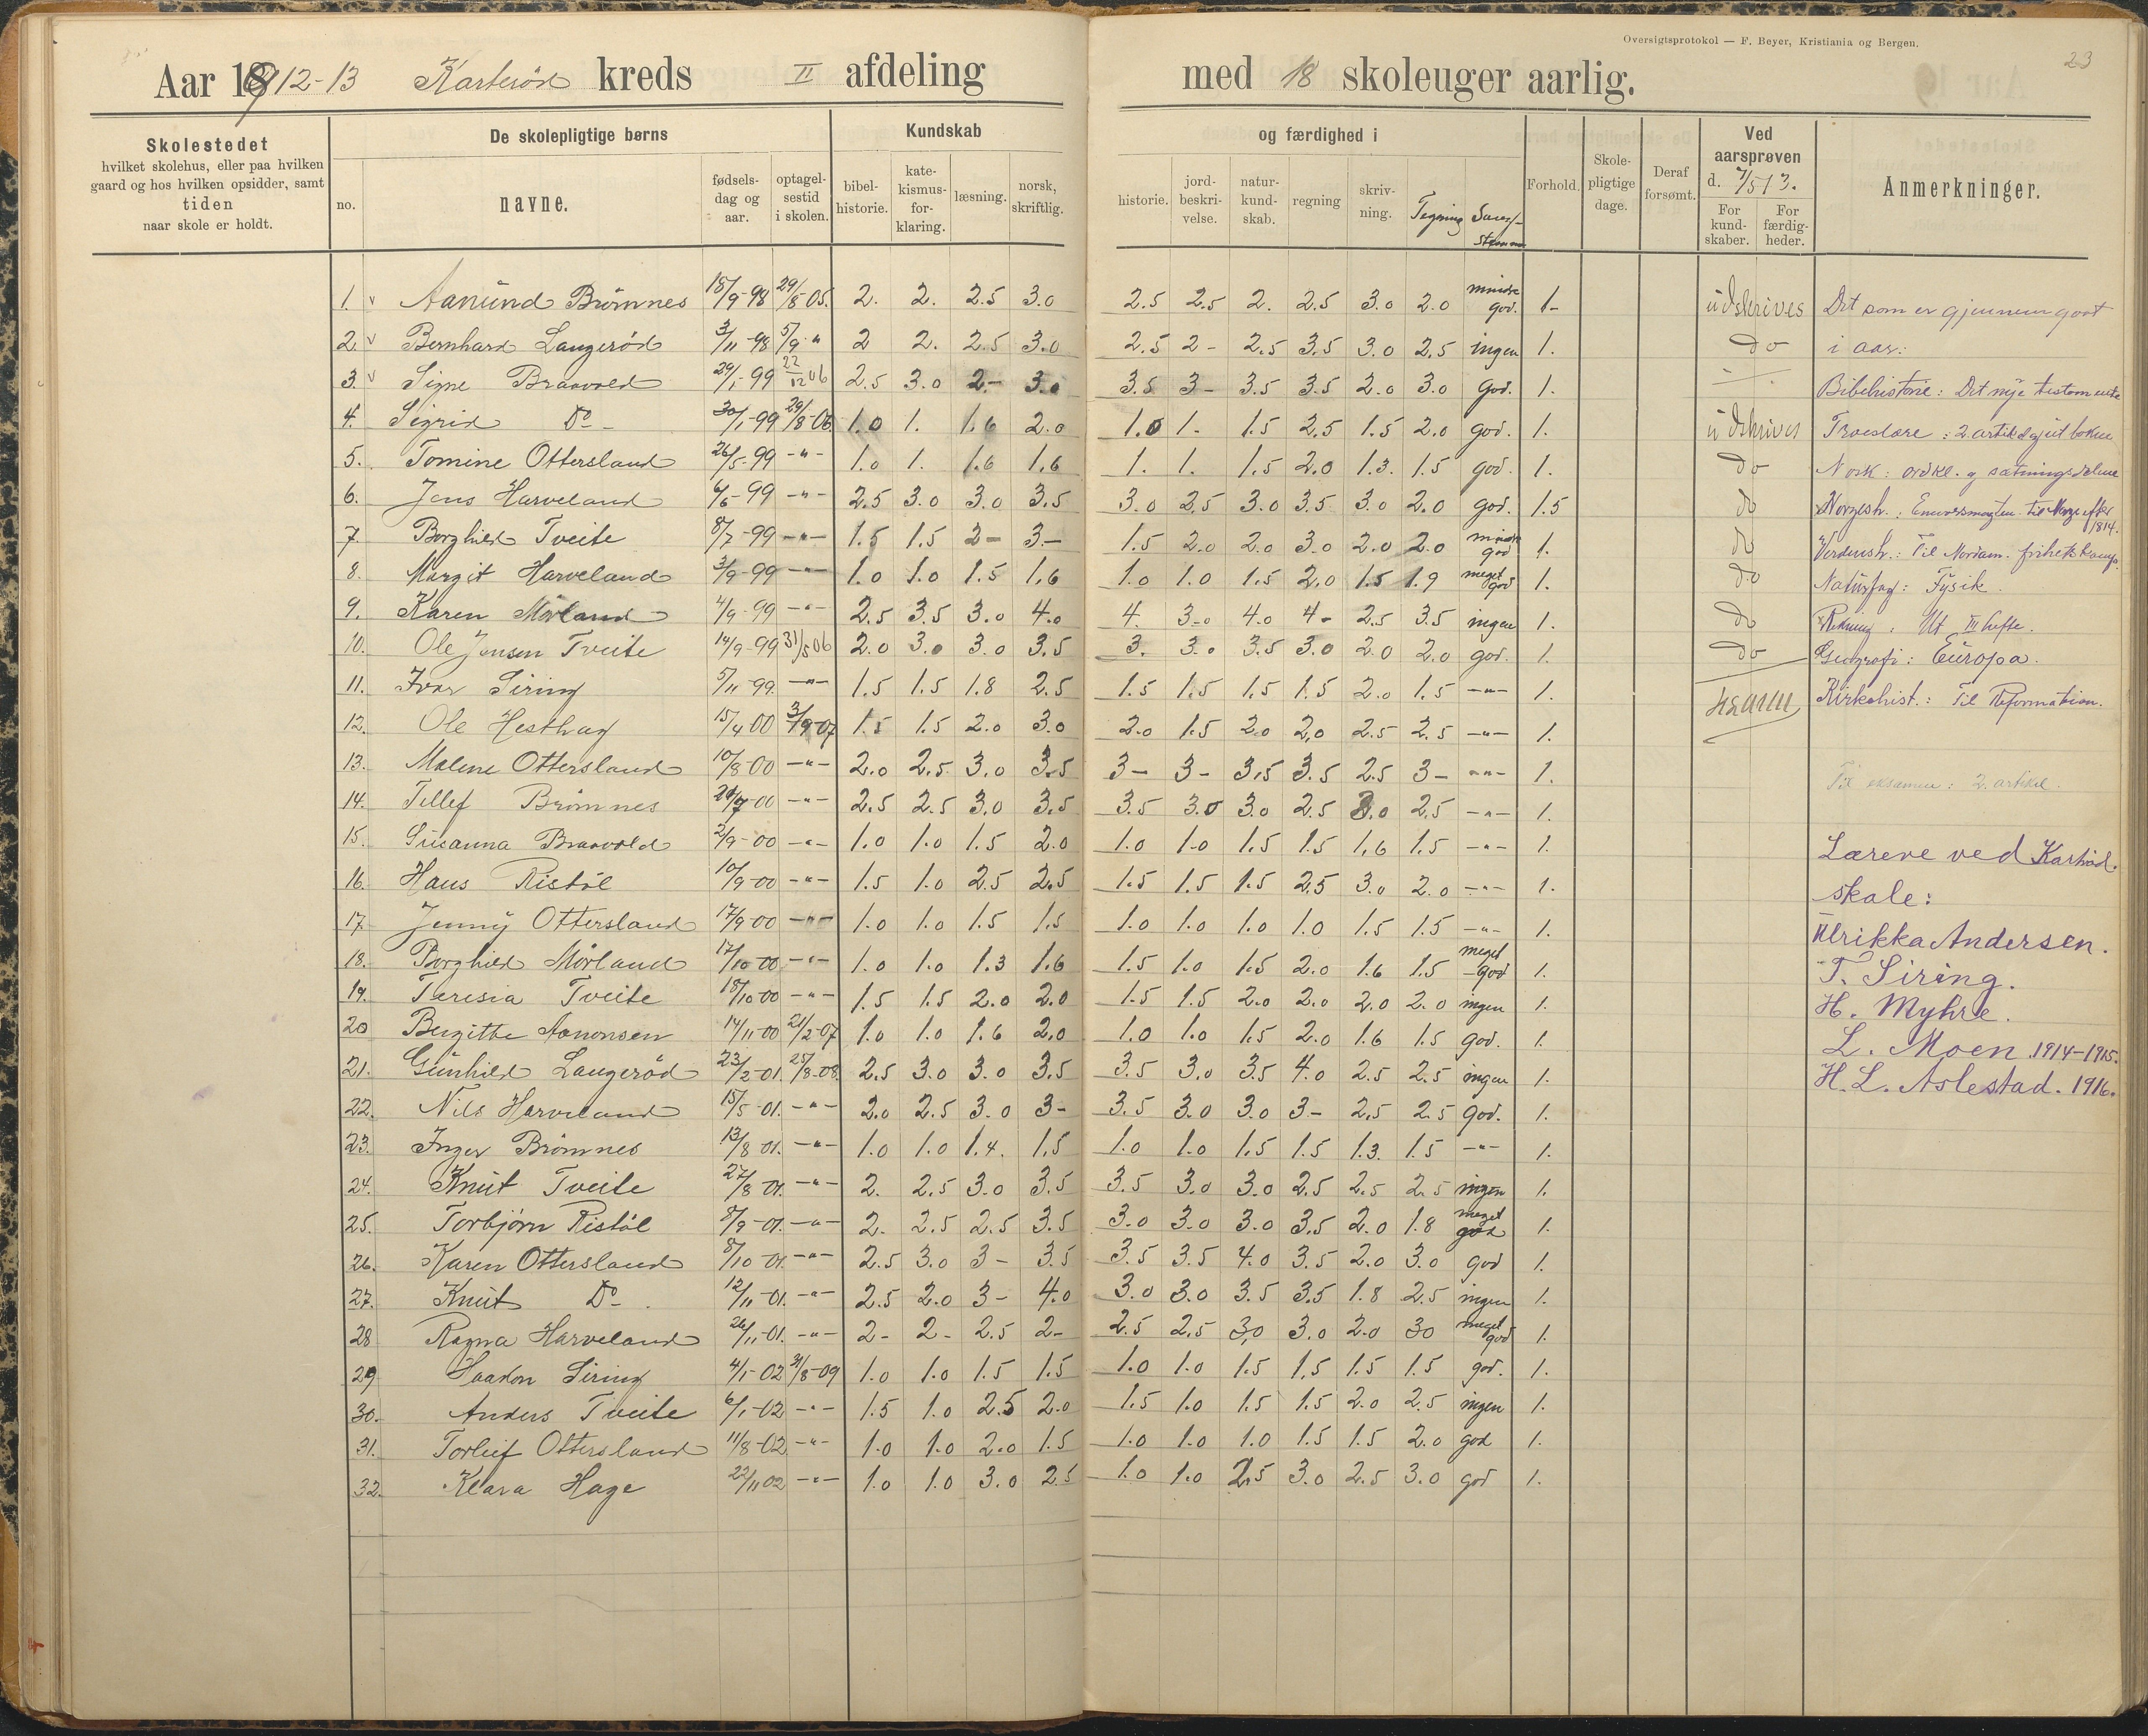 Oversigtsprotokol — F. Beyer, Kristiania og Bergen.
23
Aar 1912-13 Karterød kreds II afdeling med 18 skoleuger aarlig.
Skolestedet hvilket skolehus, eller paa hvilken gaard og hos hvilken opsidder, samt tiden naar skole er holdt.
De skolepligtige børns
Kundskab og færdighed i
no. navne. fødsels-dag og aar. optagel-sestid i skolen. bibel-historie. kate-kismus-for-klaring. læsning. norsk, skriftlig. historie. jord-beskri-velse. natur-kund-skab. regning skriv-ning. Tegning Sang/-stemme Forhold. Skole-pligtige dage. Deraf forsømt. Ved aarsprøven d. 7/5 13. For kund-skaber. For færdig-heder. Anmerkninger.
1. v Aanund Brømnes 18/9-98 29/8-05. 2. 2. 2.5 3.0 2.5 2.5 2. 2.5 3.0 2.0 mindre god. 1- udskrives Det som er gjennemgaat
2. v Bernhard Langerød 3/11-98 5/9 " 2 2. 2.5 3.0 2.5 2- 2.5 3.5 3.0 2.5 ingen 1. do i aar:
3. v Signe Braavold 29/1-99 22/12 06 2.5 3.0 2- 3.0 3.5 3- 3.5 3.5 2.0 3.0 god. 1. Bibelhistorie: Det nye testamente
4. Sigrid Do - 30/1-99 29/8-06 1.0 1. 1.6 2.0 1.0 1- 1.5 2.5 1.5 2.0 god. 1. udskrives Troeslære: 2. artikel og ut boken
5. Tomine Ottersland 26/5-99 -"- 1.0 1. 1.6 1.6 1. 1. 1.5 2.0 1.3. 1.5 god. 1. do Norsk: ordkl. og sætningsdelene
6. Jens Harveland 6/6-99 -"- 2.5 3.0 3.0 3.5 3.0 2.5 3.0 3.5 3.0 2.0 god. 1.5 do Norgesh.: Enevoldsmagten til Norge efter 1814.
7. Borghild Tveite 8/7-99 -"- 1.5 1.5 2- 3.- 1.5 2.0 2.0 3.0 2.0 2.0 mindre god 1. do Verdensh.: Til Nordam. frihetskamp.
8. Margit Harveland 3/9-99 -"- 1.0 1.0 1.5 1.6 1.0 1.0 1.5 2.0 1.5 1.9 meget god 1. do Naturfag: Fysik.
9. Karen Mørland 4/9-99 -"- 2.5 3.5 3.0 4.0 4. 3.0 4.0 4- 2.5 3.5 ingen 1. do Rekning: Ut III hefte.
10. Ole Jensen Tveite 14/9-99 31/5 06 2.0 3.0 3.0 3.5 3. 3.0 3.5 3.0 2.0 2.0 god. 1. do Geografi: Europa.
11. Ivar Siring 5/11-99. -"- 1.5 1.5 1.8 2.5 1.5 1.5 1.5 1.5 2.0 1.5 -"- 1. Kirkehist.: Til Reformation.
12. Ole Hesthag 15/4 00 3/9-07 1.5 1.5 2.0 3.0 2.0 1.5 2.0 2.0 2.5 2.5 -"- 1.
13. Malene Ottersland 10/8-00 -"- 2.0 2.5. 3.0 3.5 3- 3- 3.5 3.5 2.5 3- -"- 1. Til eksamen: 2. artikel.
14. Tellef Brømnes 20/7-00 -"- 2.5 2.5 3.0 3.5 3.5 3.0 3.0 2.5 3.0 2.5 -"- 1.
15. Susanna Braavold 2/9-00 -"- 1.0 1.0 1.5 2.0 1.0 1.0 1.5 1.5 1.6 1.5 -"- 1. Lærere ved Karterød
16. Hans Ristøl 10/9-00 -"- 1.5 1.0 2.5 2.5 1.5 1.5 1.5 2.5 3.0 2.0 -"- 1. skole:
17. Jenny Ottersland 17/9-00 -"- 1.0 1.0 1.5 1.5 1.0 1.0 1.0 1.0 1.5 1.5 -"- 1. Ulrikka Andersen.
18. Borghild Mørland 17/10-00 -"- 1.0 1.0 1.3 1.6 1.5 1.0 1.5 2.0 1.6 1.5 meget god 1. T. Siring.
19. Teresia Tveite 18/10-00 -"- 1.5 1.5 2.0 2.0 1.5 1.5 2.0 2.0 2.0 2.0 ingen 1. H. Myhre.
20 Bergitte Aanonsen 14/11-00 21/2-07 1.0 1.0 1.6 2.0 1.0 1.0 1.5 2.0 1.6 1.5 god. 1. L. Moen. 1914-1915.
21. Gunhild Langerød 23/2-01. 25/8-08. 2.5 3.0 3.0 3.5 3.5 3.0 3.5 4.0 2.5 2.5 ingen 1. H. L. Aslestad. 1916.
22. Nils Harveland 15/5-01. -"- 2.0 2.5 3.0 3- 3.5 3.0 3.0 3- 2.5 2.5 god. 1.
23. Inger Brømnes 13/8 01. -"- 1.0 1.0 1.4. 1.5 1.0 1.0 1.5 1.5 1.3. 1.5 -"- 1.
24. Knut Tveite 27/8-01. -"- 2. 2.5 3.0 3.5 3.5 3.0 3.0 2.5 2.5 2.5 ingen 1.
25. Torbjørn Ristøl 8/9-01. -"- 2. 2.5 2.5 3.5 3.0 3.0 3.0 3.5 2.0 1.8 meget god 1.
26. Karen Ottersland 8/10-01. -"- 2.5 3.0 3- 3.5 3.5 3.5 4.0 3.5 2.0 3.0 god 1.
27. Knut Do - 12/11-01. -"- 2.5 2.0 3- 4.0 3.0 3.0 3.5 3.5 1.8 2.5 ingen 1.
28 Ragna Harveland 26/11-01. -"- 2- 2- 2.5 2- 2.5 2.5 3.0 3.0 2.0 30 meget god 1.
29 Haakon Siring 4/1-02 31/8-09 1.0 1.0 1.5 1.5 1.0 1.0 1.5 1.5 1.5 1.5 god. 1.
30. Anders Tveite 6/1-02 -"- 1.5 1.0 2.5 2.0 1.5 1.0 1.5 1.5 2.0 2.5 ingen 1.
31. Torleif Ottersland 11/8-02 -"- 1.0 1.0 2.0 1.5 1.0 1.0 1.0 1.5 1.5 2.0 god 1.
32. Klara Hage 22/11 02 -"- 1.0 1.0 3.0 2.5 1.0 1.0 2.5 3.0 2.5 3.0 god 1.